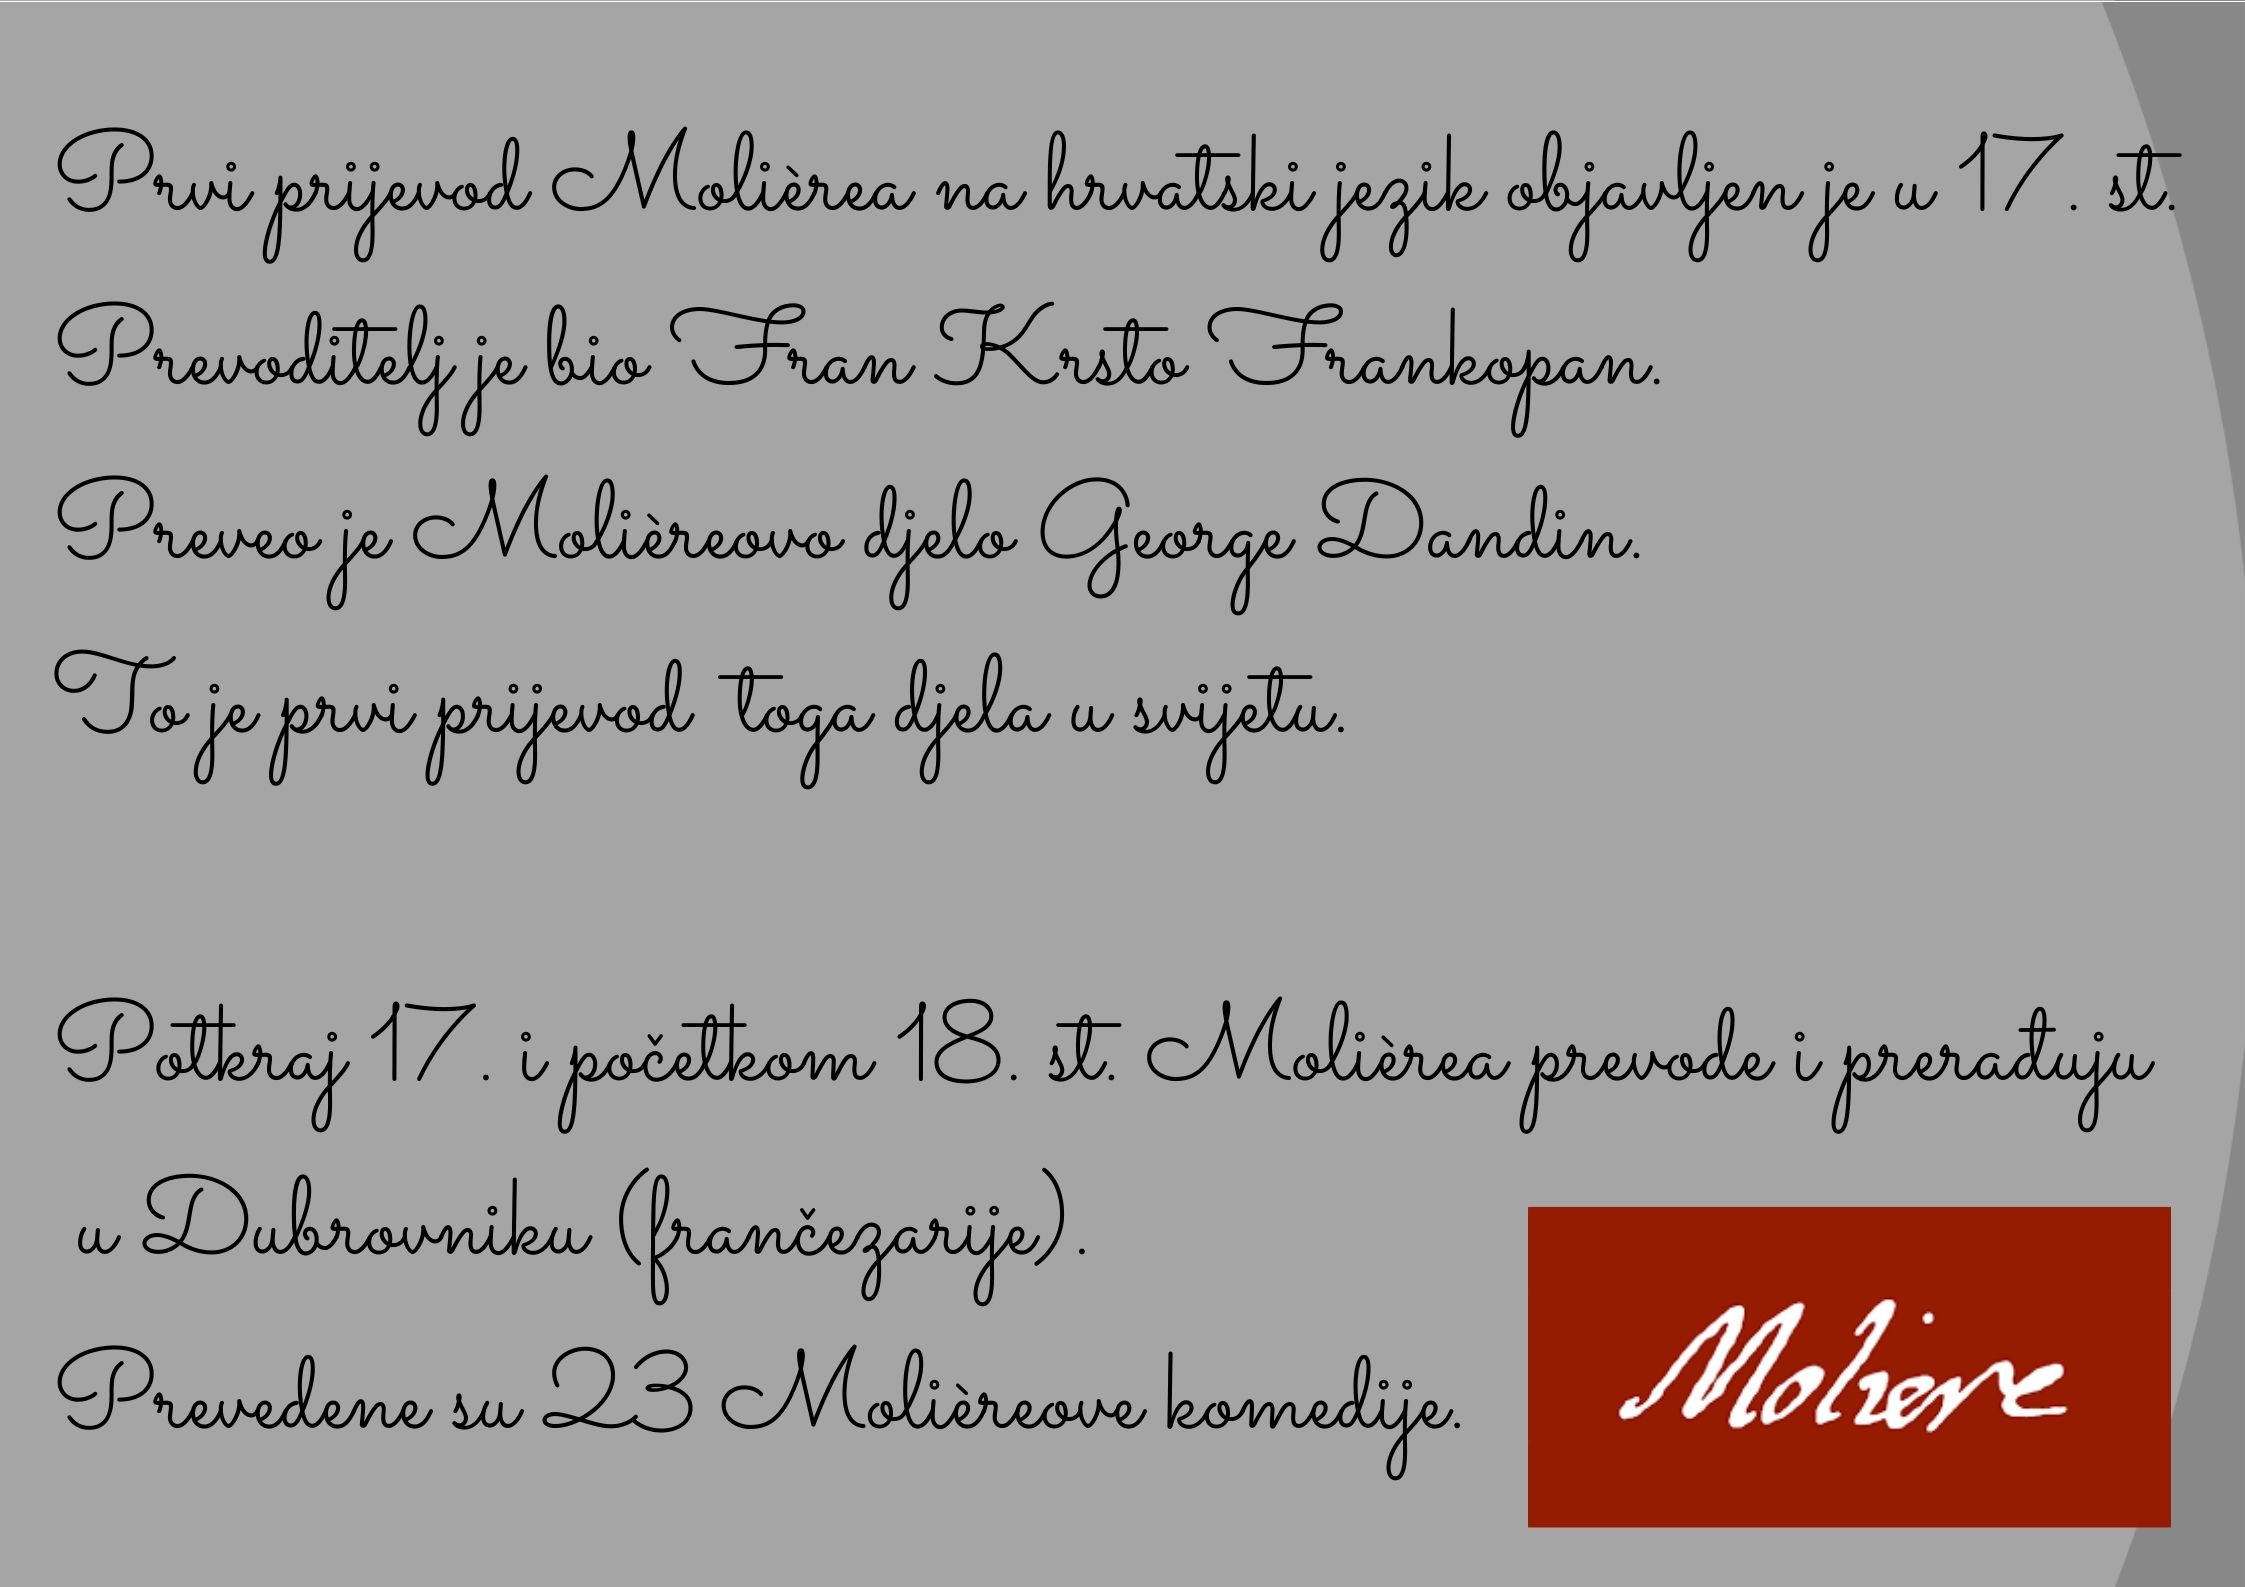 Prvi prijevod Molièrea na hrvatski jezik objavljen je u 17. st.
Prevoditelj je bio Fran Krsto Frankopan.
Preveo je Molièreovo djelo George Dandin.
To je prvi prijevod toga djela u svijetu.
Potkraj 17. i početkom 18. st. Molièrea prevode i prerađuju
u Dubrovniku (frančezarije).
Prevedene su 23 Molièreove komedije.
Moliere